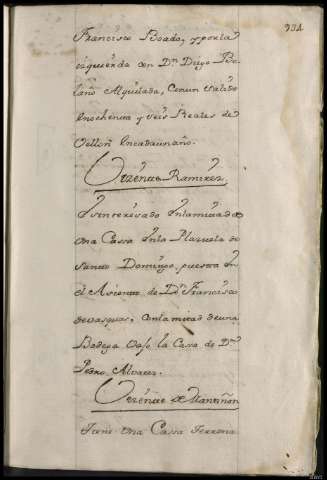 934
Francisco Boado, y por la
izquierda con Dn. Diego Bo
laño Alquilada, en un valido
en ochenta y seis Reales de
Vellon en cada un año.
Vizente Ramirez
Interesado en la mitad de
una Cassa en la Plazuela de
Santo Domingo, puesta en
el Asiento de Dn. Francisco
de vasquas, con la mitad de una
Bodega vajo la Casa de Dn.
Pedro Alvarez.
Vizente de Mantiñan
Tiene una Cassa Terrena